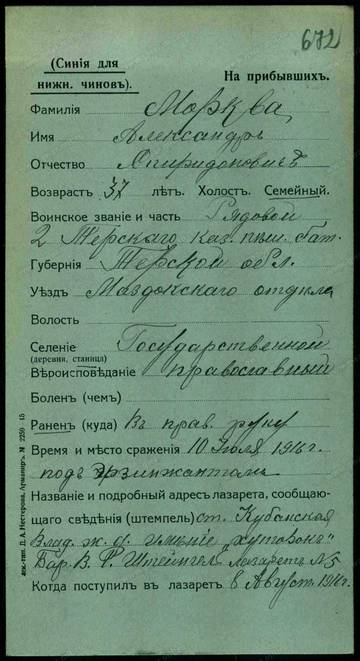 672
(Синія для
нижн. чиновъ).
На прибывшихъ.
Фамилія Морква
Имя Александръ
Отчество Спиридоновичъ
Возврастъ 37 лѣтъ. Холостъ. Семейный.
Воинское званіе и часть Рядовой
2 Терскаго каз. пѣш. бат.
Губернія Терской обл.
Уѣздъ Моздокскаго отдѣла
Волость
Селеніе Государственной
(деревня, станица)
Вѣроисповѣданіе православный
Боленъ (чемъ)
Раненъ (куда) въ прав. руку
Время и мѣсто сраженія 10 Іюля 1916 г.
подъ Эрзинжантомъ
Названіе и подробный адресъ лазарета, сообщаю-
щаго свѣдѣнія (штемпель) ст. Кубанская
Влад. ж. д. имѣніе „Хуторокъ“
Бар. В. Р. Штейнгель лазаретъ №5
Когда поступилъ въ лазаретъ 8 Август. 1916 г.
лек.-тип. Д. А. Нестерова, Армавиръ. № 2259—15